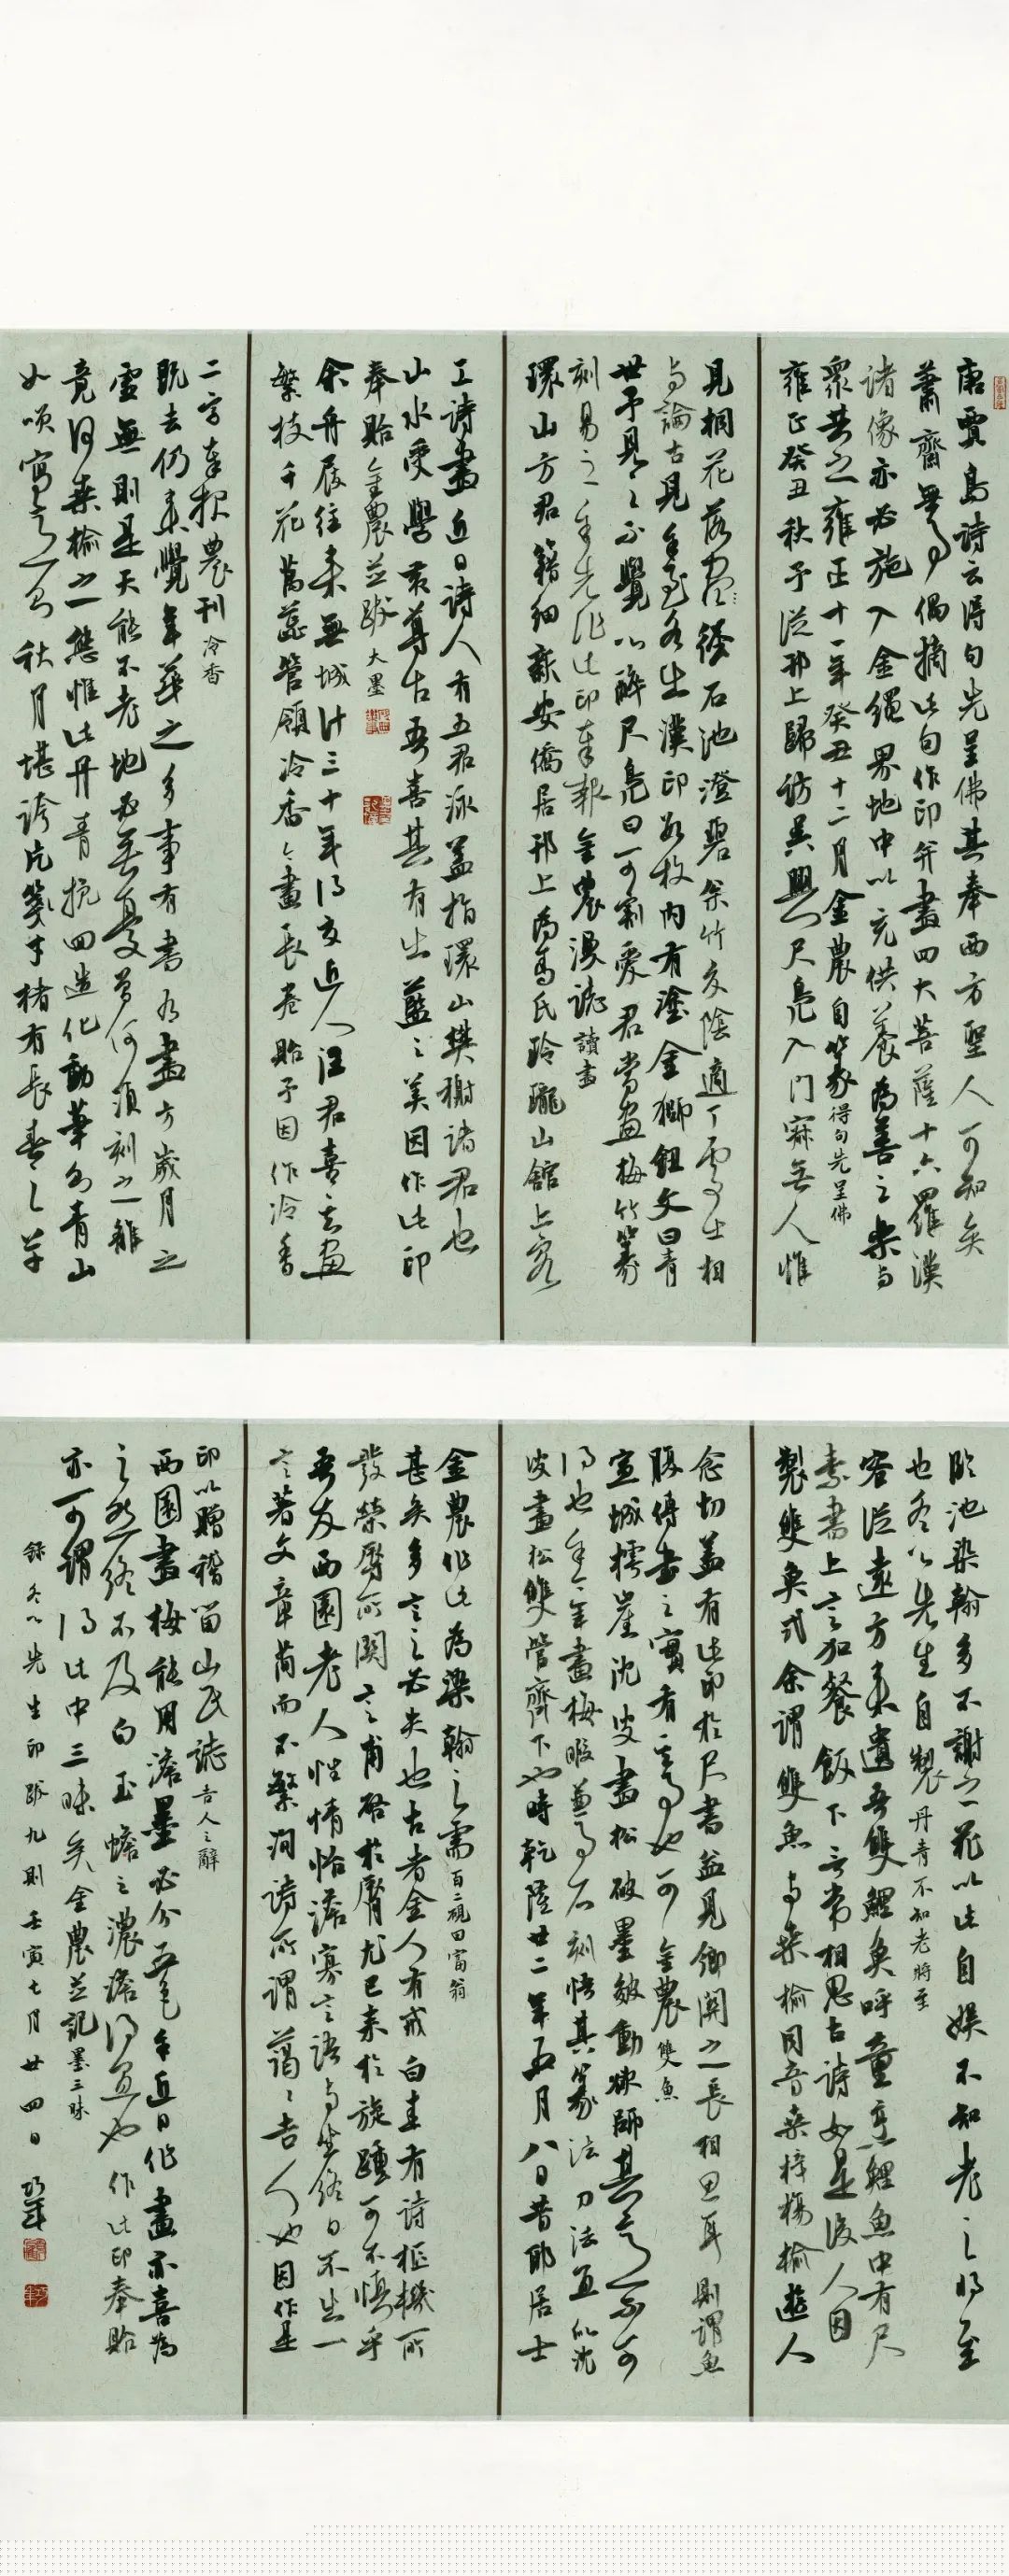 唐賈島詩云得句先呈佛其奉西方聖人可知矣
蕭齋無事偶摘此句作印并畫四大菩薩十六羅漢
諸像亦必施入金繩界地中以充供養為善之樂与
眾共之雍正十一年癸丑十二月金農自篆得句先呈佛
雍正癸丑秋予從邗上歸訪吳興尺鳧入門寂無人惟
見桐花落盡繞石池澄碧筀竹交陰適丁處士相
与論古見手玉名生漢印數枚內有塗金獅鈕文曰青
世予見之不覺心醉尺鳧曰可割愛君當畫梅竹篆
刻易之余先作此印奉報金農漫誌讀畫
環山方君籍細新安僑居邗上為馬氏玲瓏山館上客
工詩畫近日詩人有五君詠蓋指環山樊榭諸君也
山水受學黃尊古吾喜其有出藍之美因作此印
奉貽金農並跋大墨
余丹屐往來蕪城計三十年得交近人汪君喜其畫
繁枝千花萬蕊管領冷香今畫長卷貽予因作冷香
二字奉报農刊冷香
既去仍来覺年華之多事有書有畫方歲月之
虛無則是天能不老地必無憂曾何須刻之離
竟何桑榆之態惟此丹青挽回造化動筆則青山
如笑寫意則秋月堪誇片箋寸楮有長春之草
臨池染翰多不謝之花以此自娛不知老之将至
也冬心先生自製丹青不知老將至
客從遠方來遺吾雙鯉魚呼童烹鯉魚中有尺
素書上言加餐飯下言常相思古詩如是後人因
製雙魚式余謂雙魚与桑榆同音桑梓楊榆遊人
念切蓋有此印於尺書益見鄉關之長相思耳則謂魚
腹傳書之實有其事也可金農雙魚
宣城樗崖沈叟畫松破墨皴動欲師其意而不可
得也余今年畫梅暇兼事石刻悟其篆法刀法直似沈
叟畫松雙管齊下也時乾隆廿二年五月八日昔耶居士
金農作此為染翰之需百二硯田富翁
甚矣多言之必失也古者金人有戒白圭有詩樞機所
發榮辱所關言甫啓於脣尤已来於旋踵可不慎乎
吾友西園老人性情恬澹寡言語与坐終日不出一
言著文章簡而不繁洵詩所謂藹藹吉人也因作是
印以贈稽留山民誌吉人之辭
西園畫梅能用澹墨必分五色余近日作畫亦喜為
之然終不及白玉蟾之濃澹得宜也作此印奉貽
亦可謂得此中三昧矣金農並記墨三昧
錄冬心先生印跋九則壬寅七月廿四日